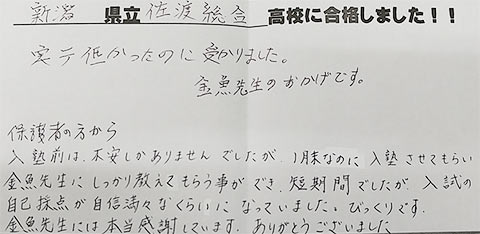 新潟 県立 佐渡総合 高校に合格しました!!
実テ低かったのに受かりました。
金魚先生のおかげです。
保護者の方から
入塾前は、不安しかありませんでしたが、1月末なのに入塾させてもらい
金魚先生にしっかり教えてもらう事ができ、短期間でしたが、入試の
自己採点が自信満々なくらいになっていました。びっくりです。
金魚先生には本当感謝しています。ありがとうございました